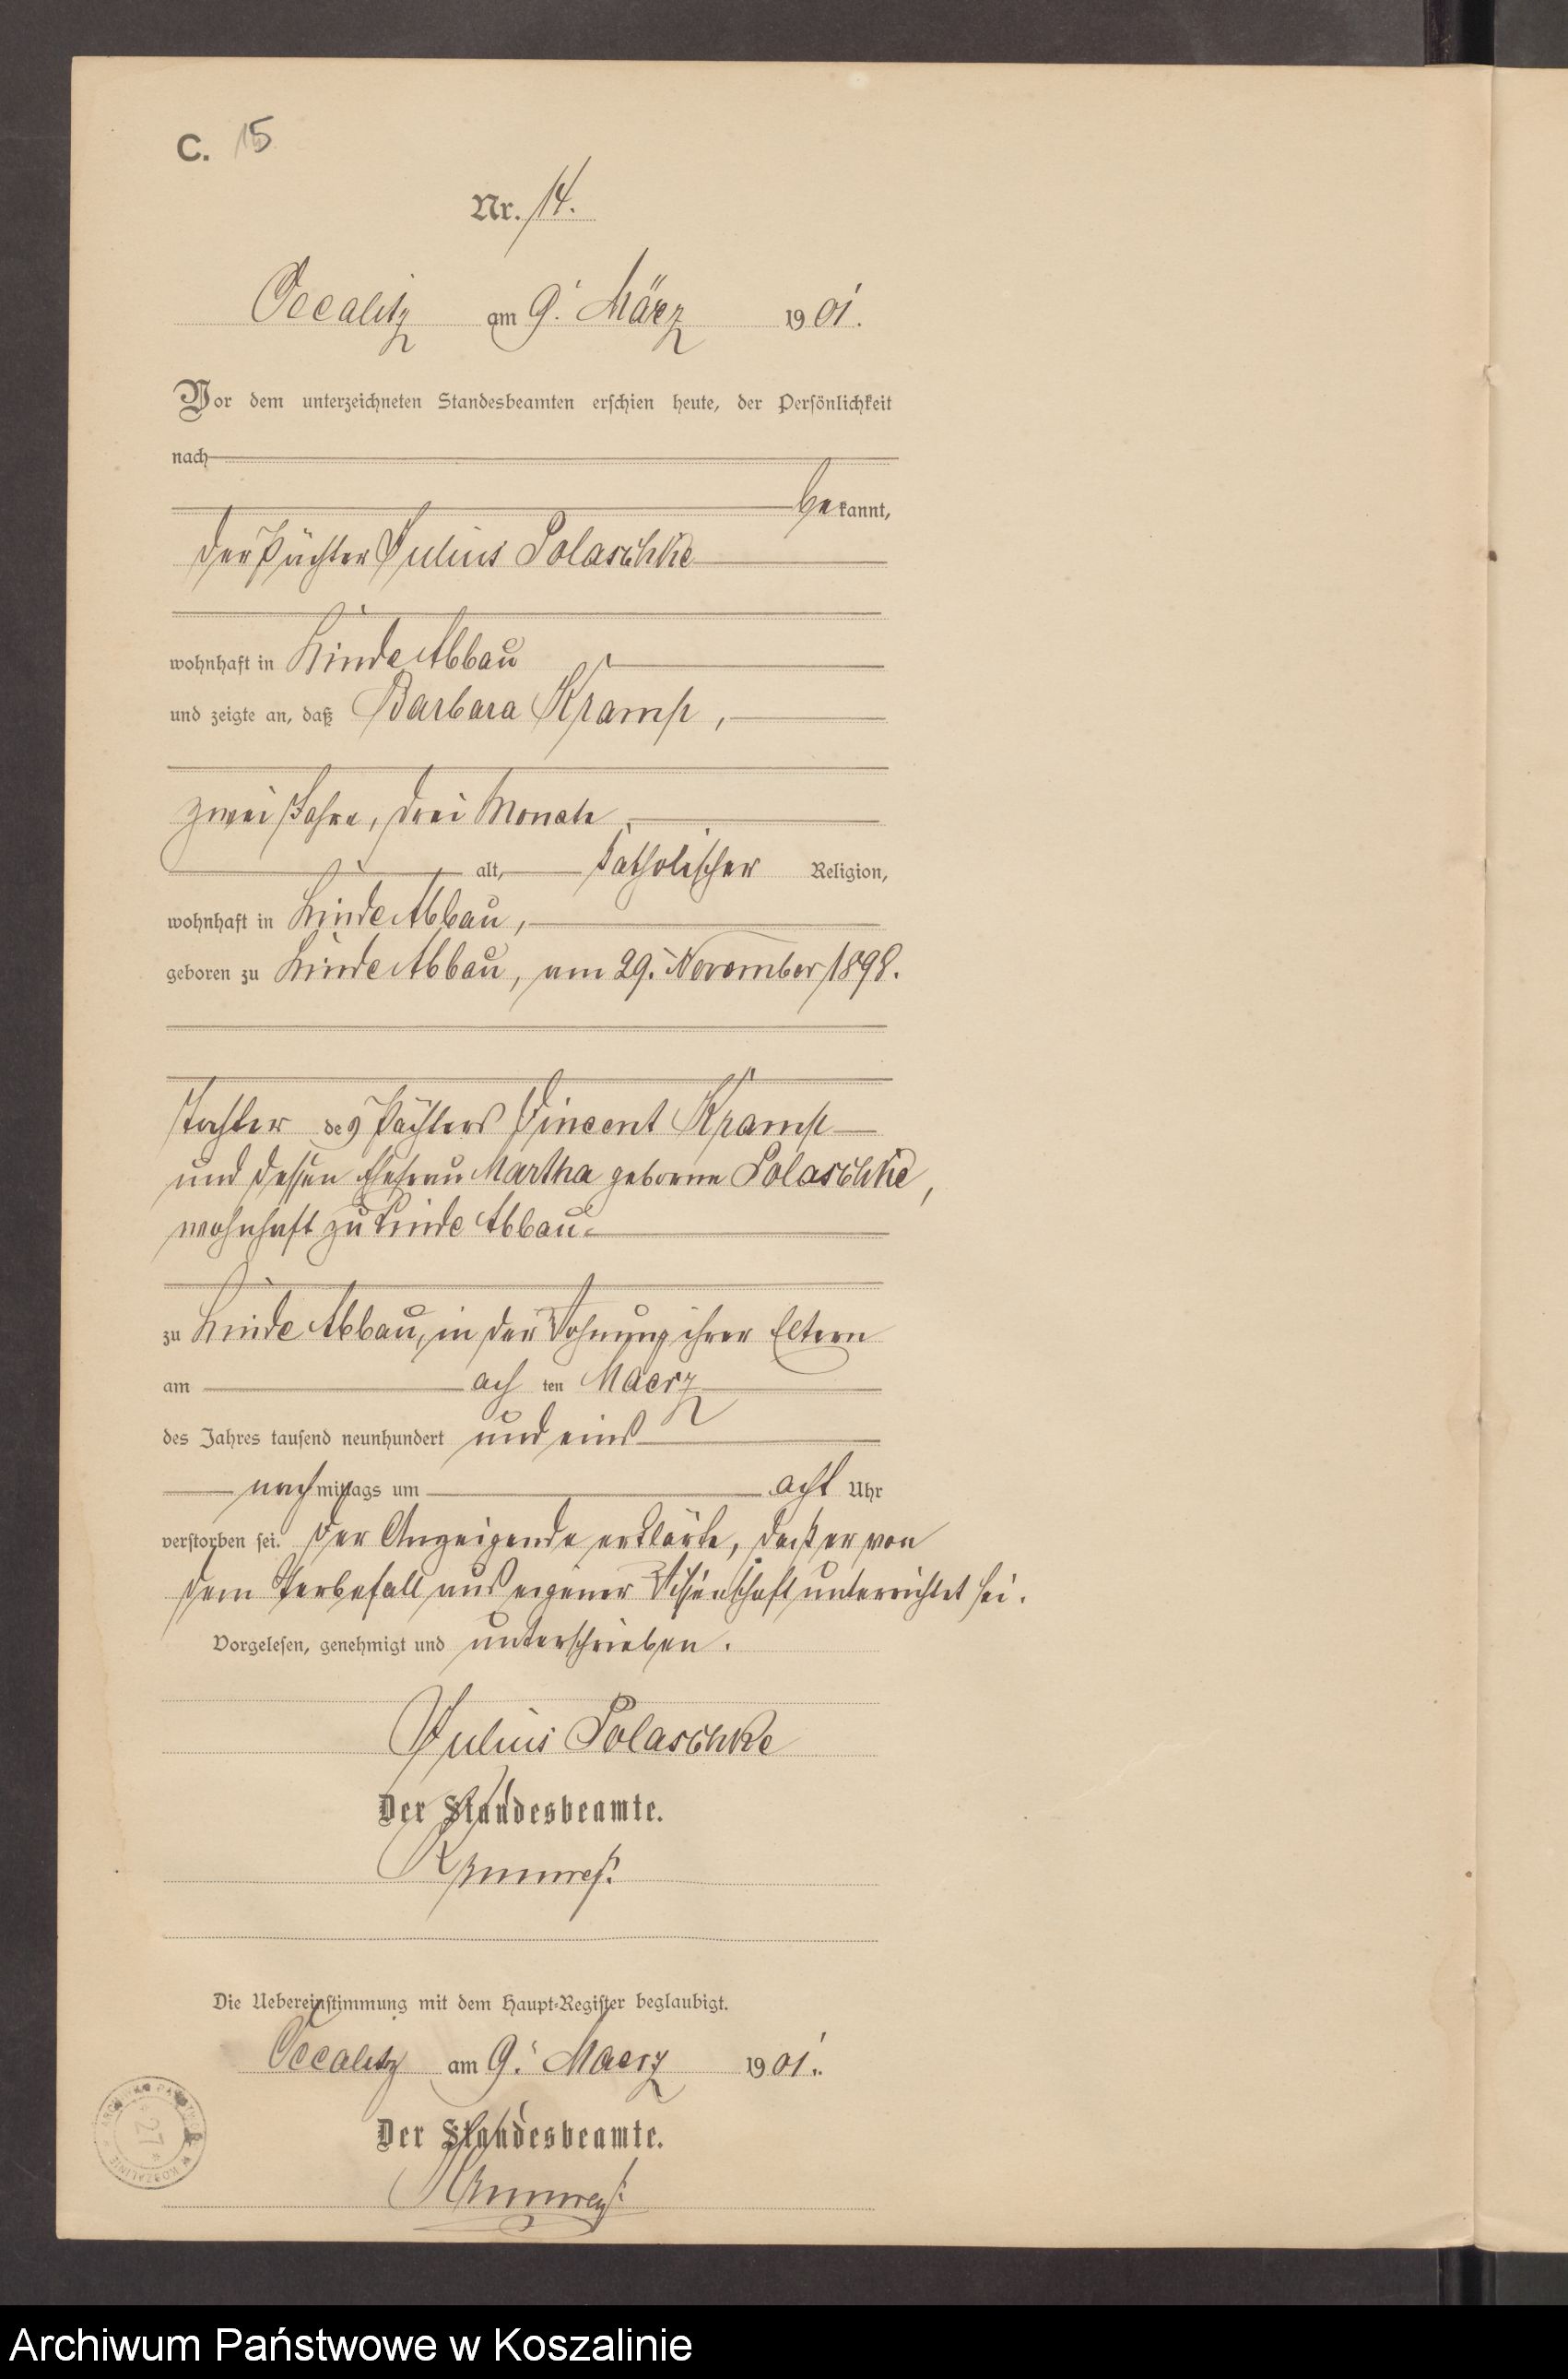 C. 15
Nr. 14.
Occalitz am 9. März 1901.
Vor dem unterzeichneten Standesbeamten erschien heute, der Persönlichkeit
nach
bekannt,
der Pächter Julius Polaschke
wohnhaft in Linde Abbau
und zeigte an, daß Barbara Kramp,
zwei Jahre, drei Monate
alt, katholischer Religion,
wohnhaft in Linde Abbau,
geboren zu Linde Abbau, am 29. November 1898.
Tochter des Pächters Vincent Kramp
und dessen Ehefrau Martha geborene Polaschke,
wohnhaft zu Linde Abbau
zu Linde Abbau, in der Wohnung ihrer Eltern
am achten Maerz
des Jahres tausend neunhundert und eins
nachmittags um acht Uhr
verstorben sei. Der Anzeigende erklärte, daß er von
dem Sterbefall aus eigener Wissenschaft unterrichtet sei.
Vorgelesen, genehmigt und unterschrieben.
Julius Polaschke
Der Standesbeamte.
Die Uebereinstimmung mit dem Haupt-Register beglaubigt.
Occalitz am 9. Maerz 1901.
Der Standesbeamte.
ARCHIWUM PAŃSTWOWE W KOSZALINIE
* 27 *
Archiwum Państwowe w Koszalinie